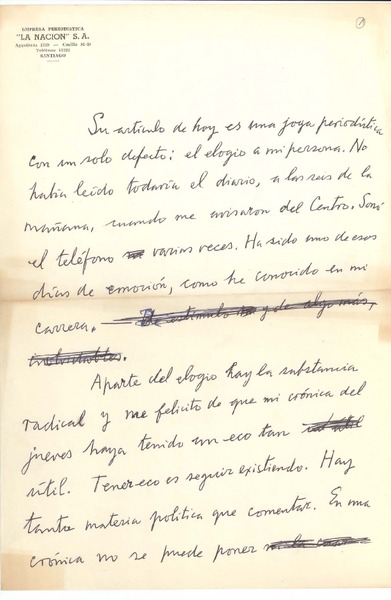 1
EMPRESA PERIODISTICA
"LA NACION" S. A.
Agustinas 1269 — Casilla 81-D
Teléfono 82222
SANTIAGO
Su artículo de hoy es una joya periodística
con un solo defecto: el elogio a mi persona. No
había leído todavía el diario, a las seis de la
mañana, cuando me avisaron del Centro. Sonó
el teléfono varias veces. Ha sido uno de esos
días de emoción, como he conocido en mi
carrera. De estímulo y de algo más,
Aparte del elogio hay la substancia
radical y me felicito de que mi crónica del
jueves haya tenido un eco tan
útil. Tener eco es seguir existiendo. Hay
tanta materia política que comentar. En una
crónica no se puede poner